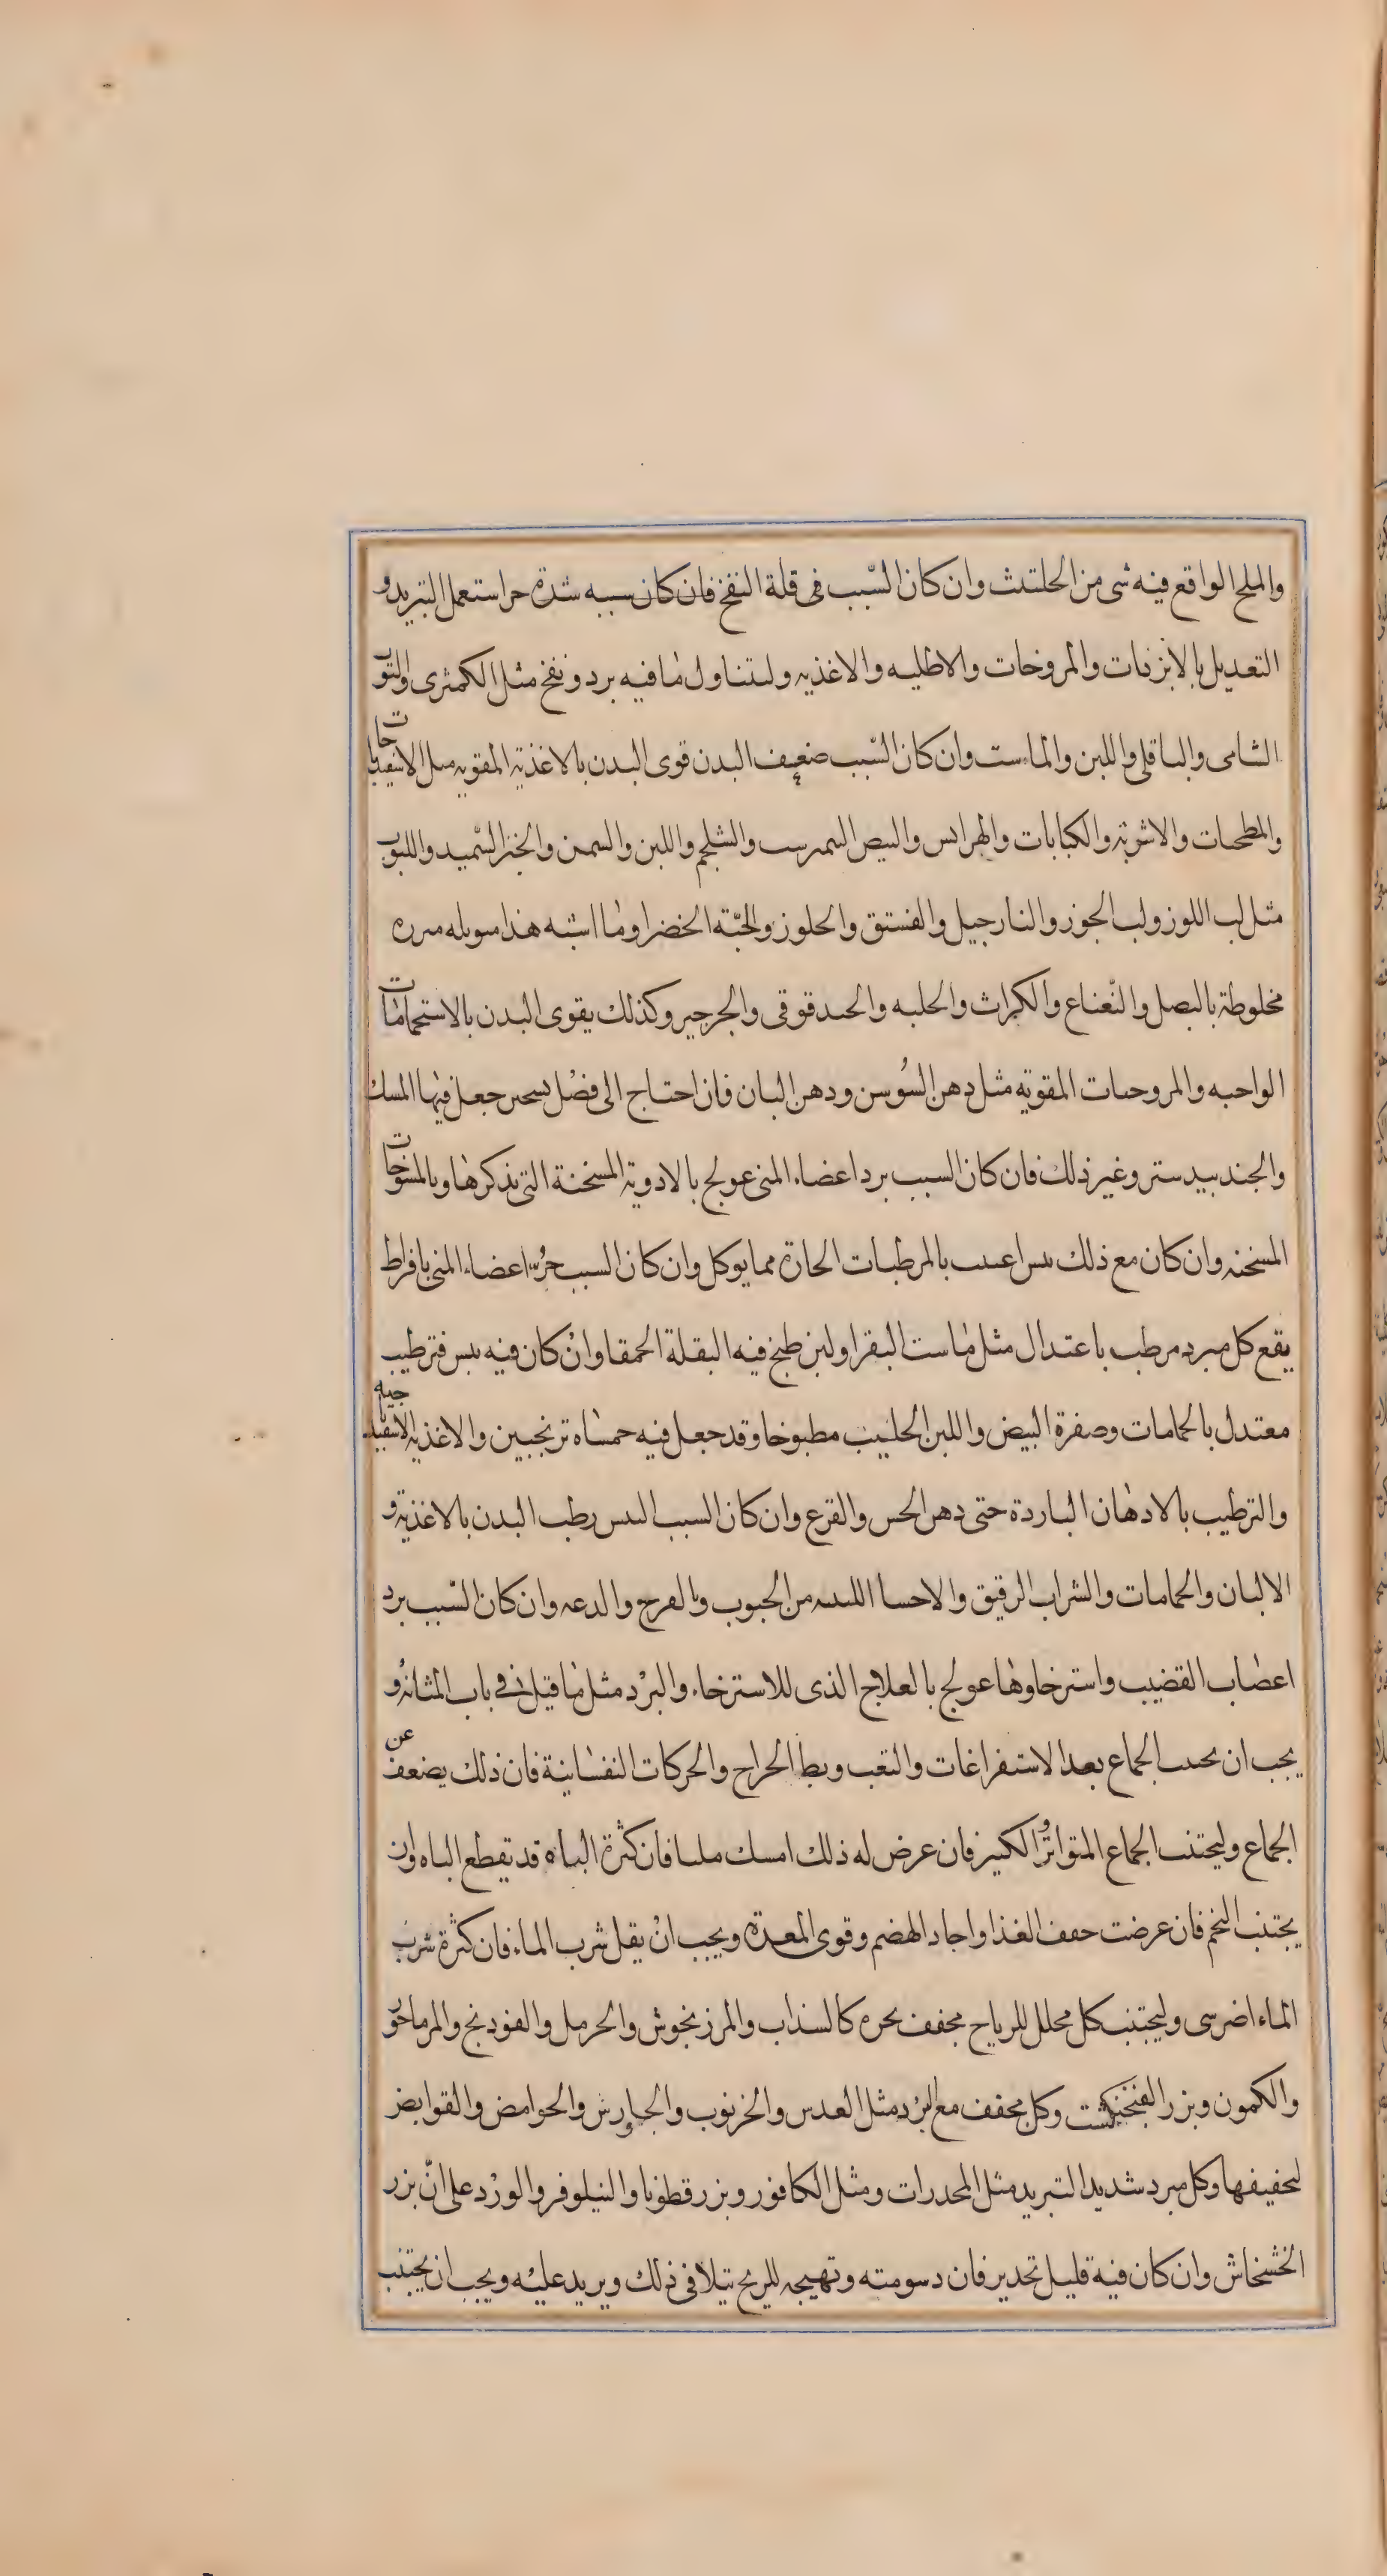 والملح الواقع فيه شى من الحلتيت وان كان السّبب فى قلة النفخ فان كان سببه شدة حر استعمل التبريد و
التعديل بالابزنات والمروخات والاطليه والاغذيه ولتناول ما فيه برد ونفخ مثل الكمثرى والتوت
الشامى والباقلى واللبن والماست وان كان السّبب ضعيف البدن قوى البدن بالاغذية المقويه مثل الاسفيدباجات
والمطحات والاشربة والكبابات والهرايس والبيض النمرست والشلجم واللبن والسمن والخبز السّميد واللبوب
مثل لب اللوز ولب الجوز والنارجيل والفستق والحلوز والحبّة الخضرا وما اشبه هذا
مخلوطة بالبصل والنّعناع والكراث والحلبه والحندقوقى والجرجير وكذلك يقوى البدن بالاستحمامات
الواجبه والمروحات المقويه مثل دهن السُوسن ودهن البان فان احتاج الى فضل تسخين جعل فيها المسك
والجندبيدستر وغير ذلك فان كان السبب برد اعضاء المنى عولج بالادوية المسخنة التى نذكرها وبالمسوخات
المسخنه وان كان مع ذلك يبس اعينت بالمرطبات الحارة مما يوكل وان كان السبب حرُ اعضاء المنى بافراط
يقع كل مبرد مرطب باعتدال مثل ماست البقر او لبن طبخ فيه البقلة الحمقا وان كان فيه يبس فترطيب
معتدل بالحمامات وصفرة البيض واللبن الحليب مطبوخا وقد جعل فيه خمساه ترنجبين والاغذيه الاسفيدباجيه
والترطيب بالادهان الباردة حتى دهن الخس والقرع وان كان السبب اليبس رطب البدن بالاغذية و
الالبان والحمامات والشراب الرقيق والاحسا اللينه من الحبوب وبالفرح والدعه وان كان السّبب برد
اعصاب القضيب واسترخاوها عولج بالعلاج الذى للاسترخاء والبرد مثل ما قيل فى باب المثانة و
يجب ان يجتنب الجماع بعد الاستفراغات والتعب وبط الخراج والحركات النفسانية فان ذلك يضعف عن
الجماع وليجتنب الجماع المتواتر الكثير فان عرض له ذلك امسك مليا فان كثرة الباه قد تقطع الباه وان
يجتنب التخم فان عرضت خفف الغذا واجاد الهضم وقوى المعدة ويجب ان يقل شرب الماء فان كثرة شرب
الماء اضر شى وليجتنب كل محلل للرياح مجفف بحره كالسذاب والمرزنجوش والحرمل والفودنج والمرماحوز
والكمون وبزر الفنجنكشت وكل مجفف مع البرد مثل العدس والخرنوب والجاورش والحوامض والقوابض
لتجفيفها وكل مبرد شديد التبريد مثل المخدرات ومثل الكافور وبزر قطونا والنيلوفر والورد على انّ بزر
الخشخاش وان كان فيه قليل تخدير فان دسومته وتهيجه للريح يتلافى ذلك ويزيد عليه ويجب ان يجتنب